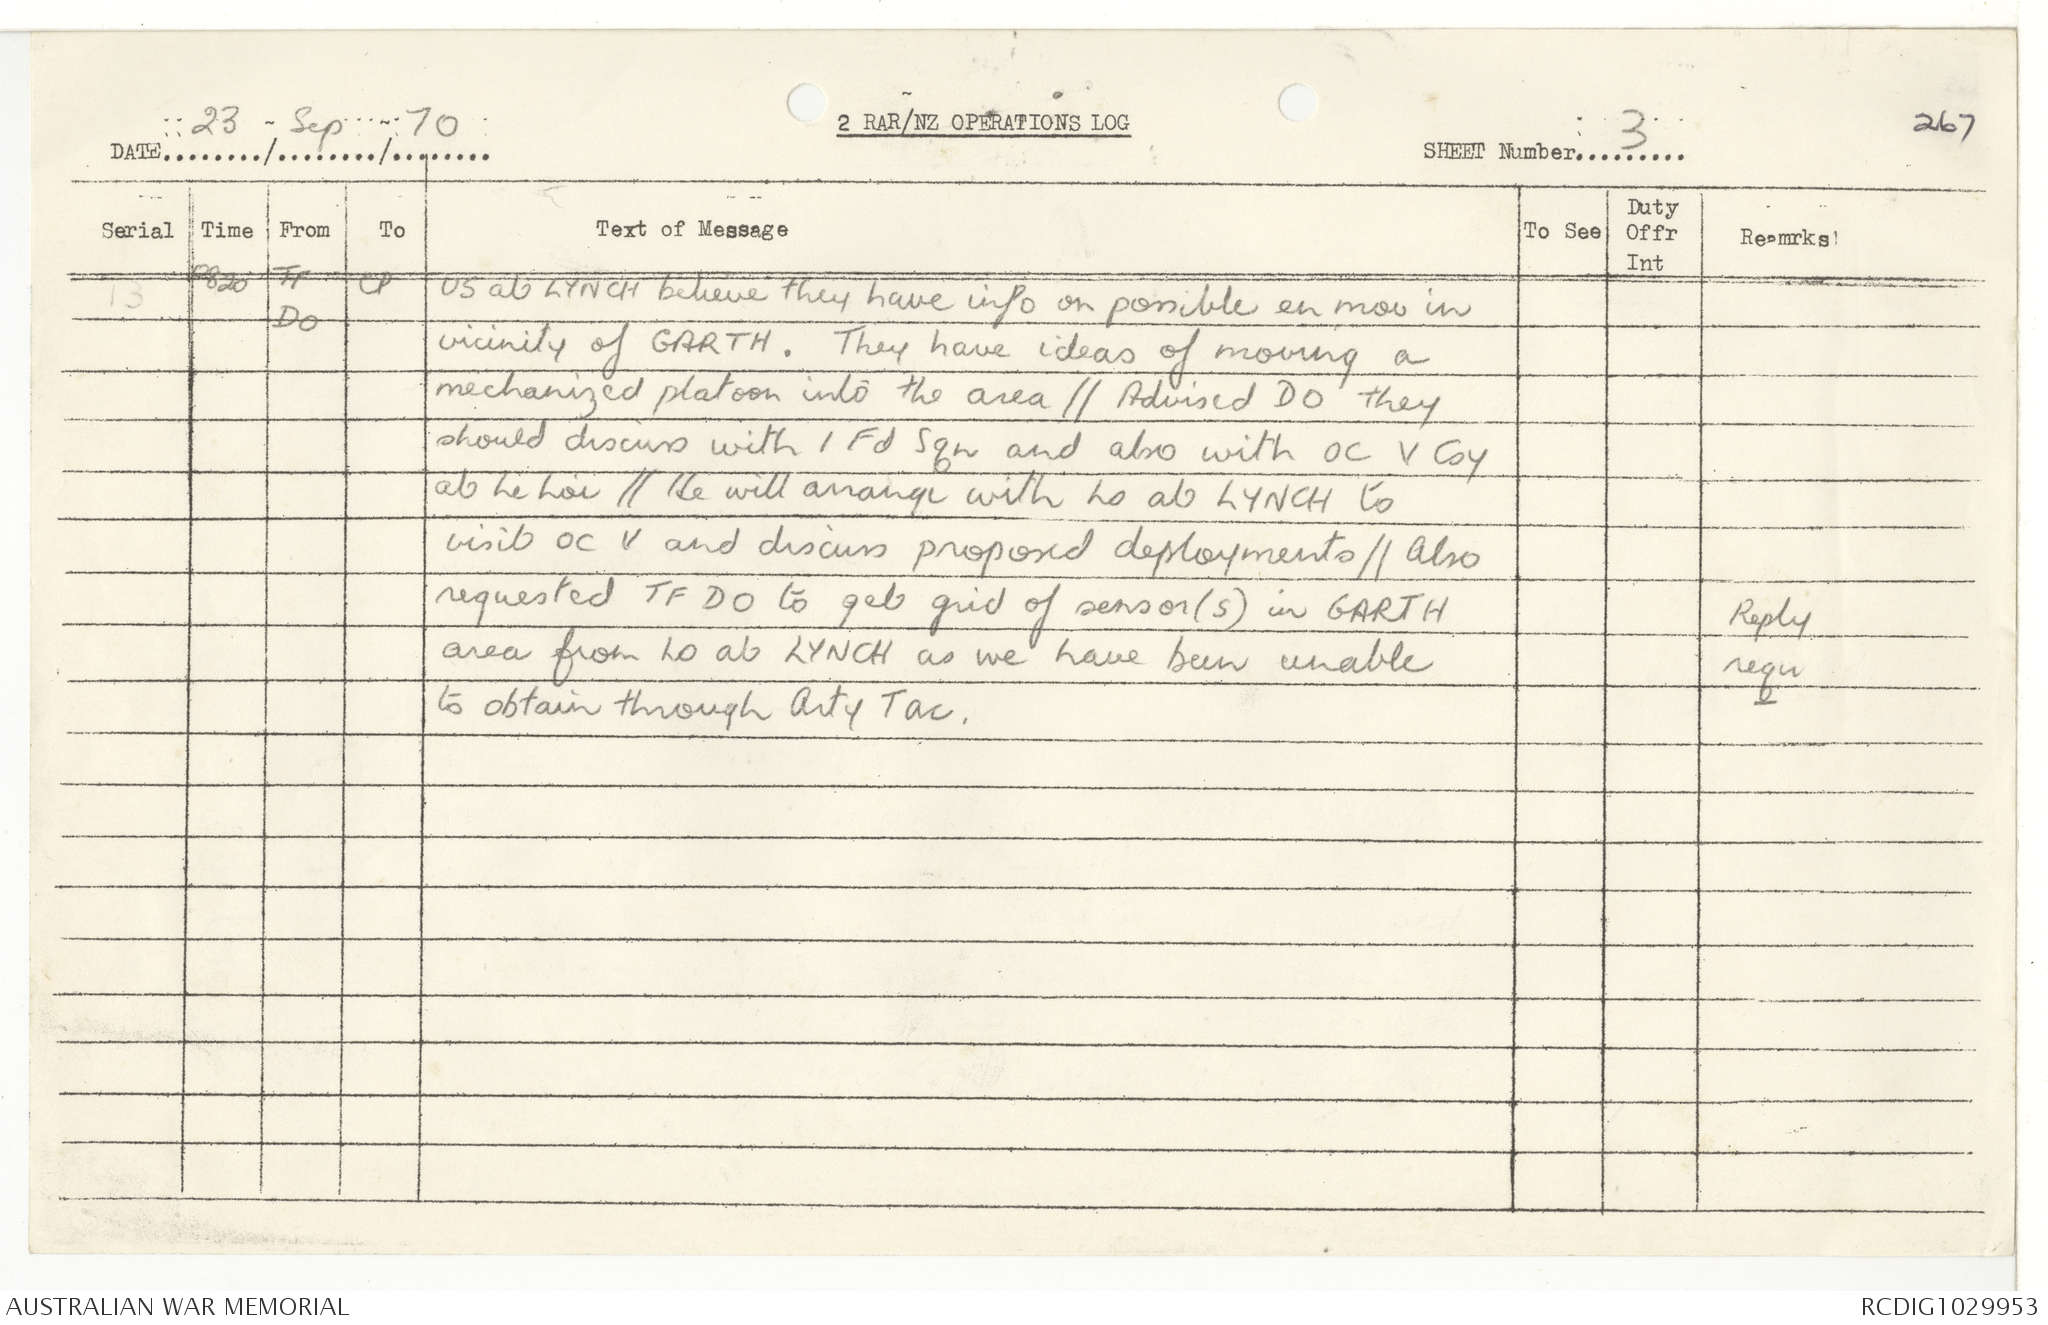 23 Sep 70
DATE........./........./.........
2 RAR/NZ OPERATIONS LOG
SHEET Number.......... 3
267
Serial Time From To Text of Message To See Duty Offr Int Reomrks
13 0820 TF CP US at LYNCH believe they have info on possible en mov in
DO vicinity of GARTH. They have ideas of moving a
mechanized platoon into the area // Advised DO they
should discuss with 1 Fd Sqn and also with OC V Coy
at Le Loi // He will arrange with LO at LYNCH to
visit OC V and discuss proposed deployments // Also
requested TF DO to get grid of sensor(s) in GARTH Reply
area from LO at LYNCH as we have been unable requ
to obtain through Arty Tac.
AUSTRALIAN WAR MEMORIAL
RCDIG1029953